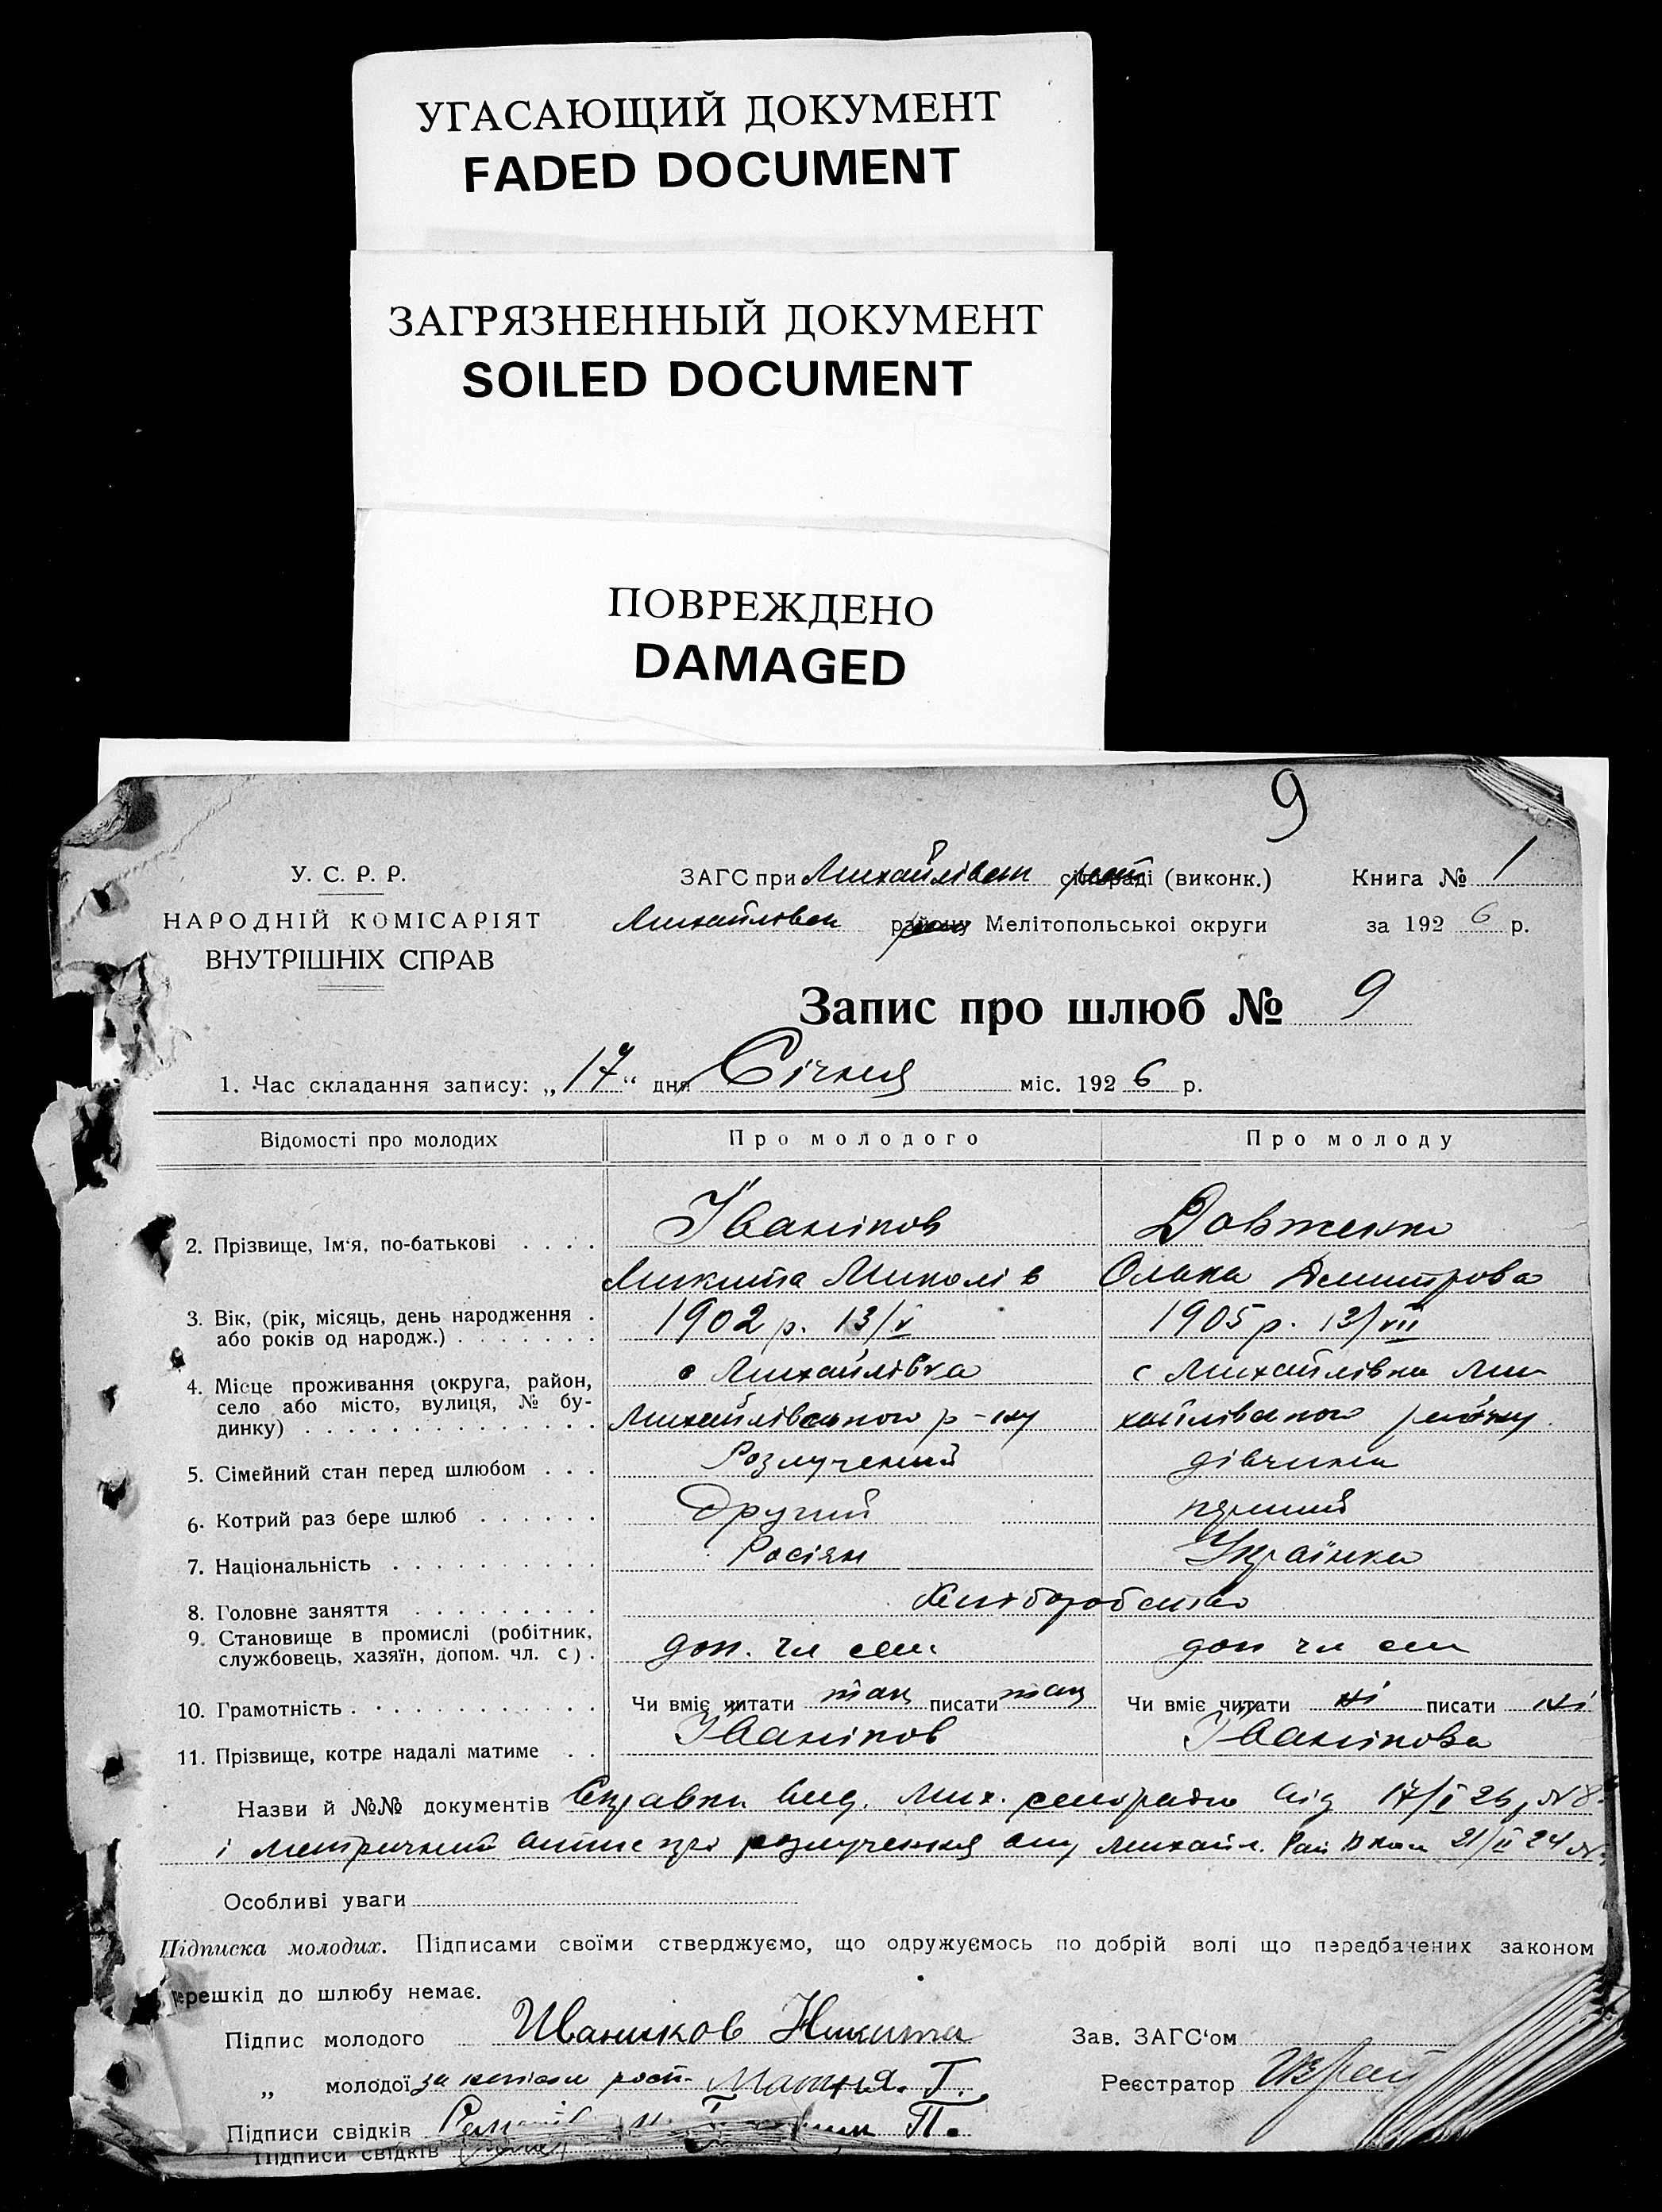 УГАСАЮЩИЙ ДОКУМЕНТ
FADED DOCUMENT
ЗАГРЯЗНЕННЫЙ ДОКУМЕНТ
SOILED DOCUMENT
ПОВРЕЖДЕНО
DAMAGED
9
У. С. Р. Р.
НАРОДНІЙ КОМІСАРІЯТ
ВНУТРІШНІХ СПРАВ
ЗАГС при Михайлівськ сільраді (виконк.)
Михайлівськ району Мелітопольської округи
Книга № 1
за 1926 р.
Запис про шлюб № 9
1. Час складання запису: „17“ дня Січня міс. 1926 р.
Відомості про молодих Про молодого Про молоду
2. Прізвище, Ім‘я, по-батькові . . . . Іваніков Довженко
Микита Миколів Олька Дмитрова
3. Вік, (рік, місяць, день народження . 1902 р. 13/V 1905 р. 13/VII
або років од народж.) . . . . . . .
4. Місце проживання (округа, район, с Михайлівка с Михайлівка Ми-
село або місто, вулиця, № бу- Михайлівського р-ну хайлівського району.
динку) . . . . . . . . . . . . . .
5. Сімейний стан перед шлюбом . . . Розлучений дівчина
6. Котрий раз бере шлюб . . . . . . Другий перший
7. Національність . . . . . . . . . . Росіян Українка
8. Головне заняття . . . . . . . . . Хліборобство
9. Становище в промислі (робітник, доп. чл сем. доп чл сем
службовець, хазяїн, допом. чл. с) .
10. Грамотність . . . . . . . . . . . Чи вміє читати так писати так Чи вміє читати ні писати ні
11. Прізвище, котре надалі матиме . . Іваніков Іванікова
Назви й №№ документів Справки вид. Мих. сельради від 17/I 26 р №8
і метричний витис про розлучення Михайл. Рай 21/II 24 №
Особливі уваги
Підписка молодих. Підписами своїми стверджуємо, що одружуємось по добрій волі що передбачених законом
перешкід до шлюбу немає.
Підпис молодого Иваников Никита Зав. ЗАГС‘ом
„ молодої за неписьм розп. Т. Реєстратор
Підписи свідків П.
Підписи свідків